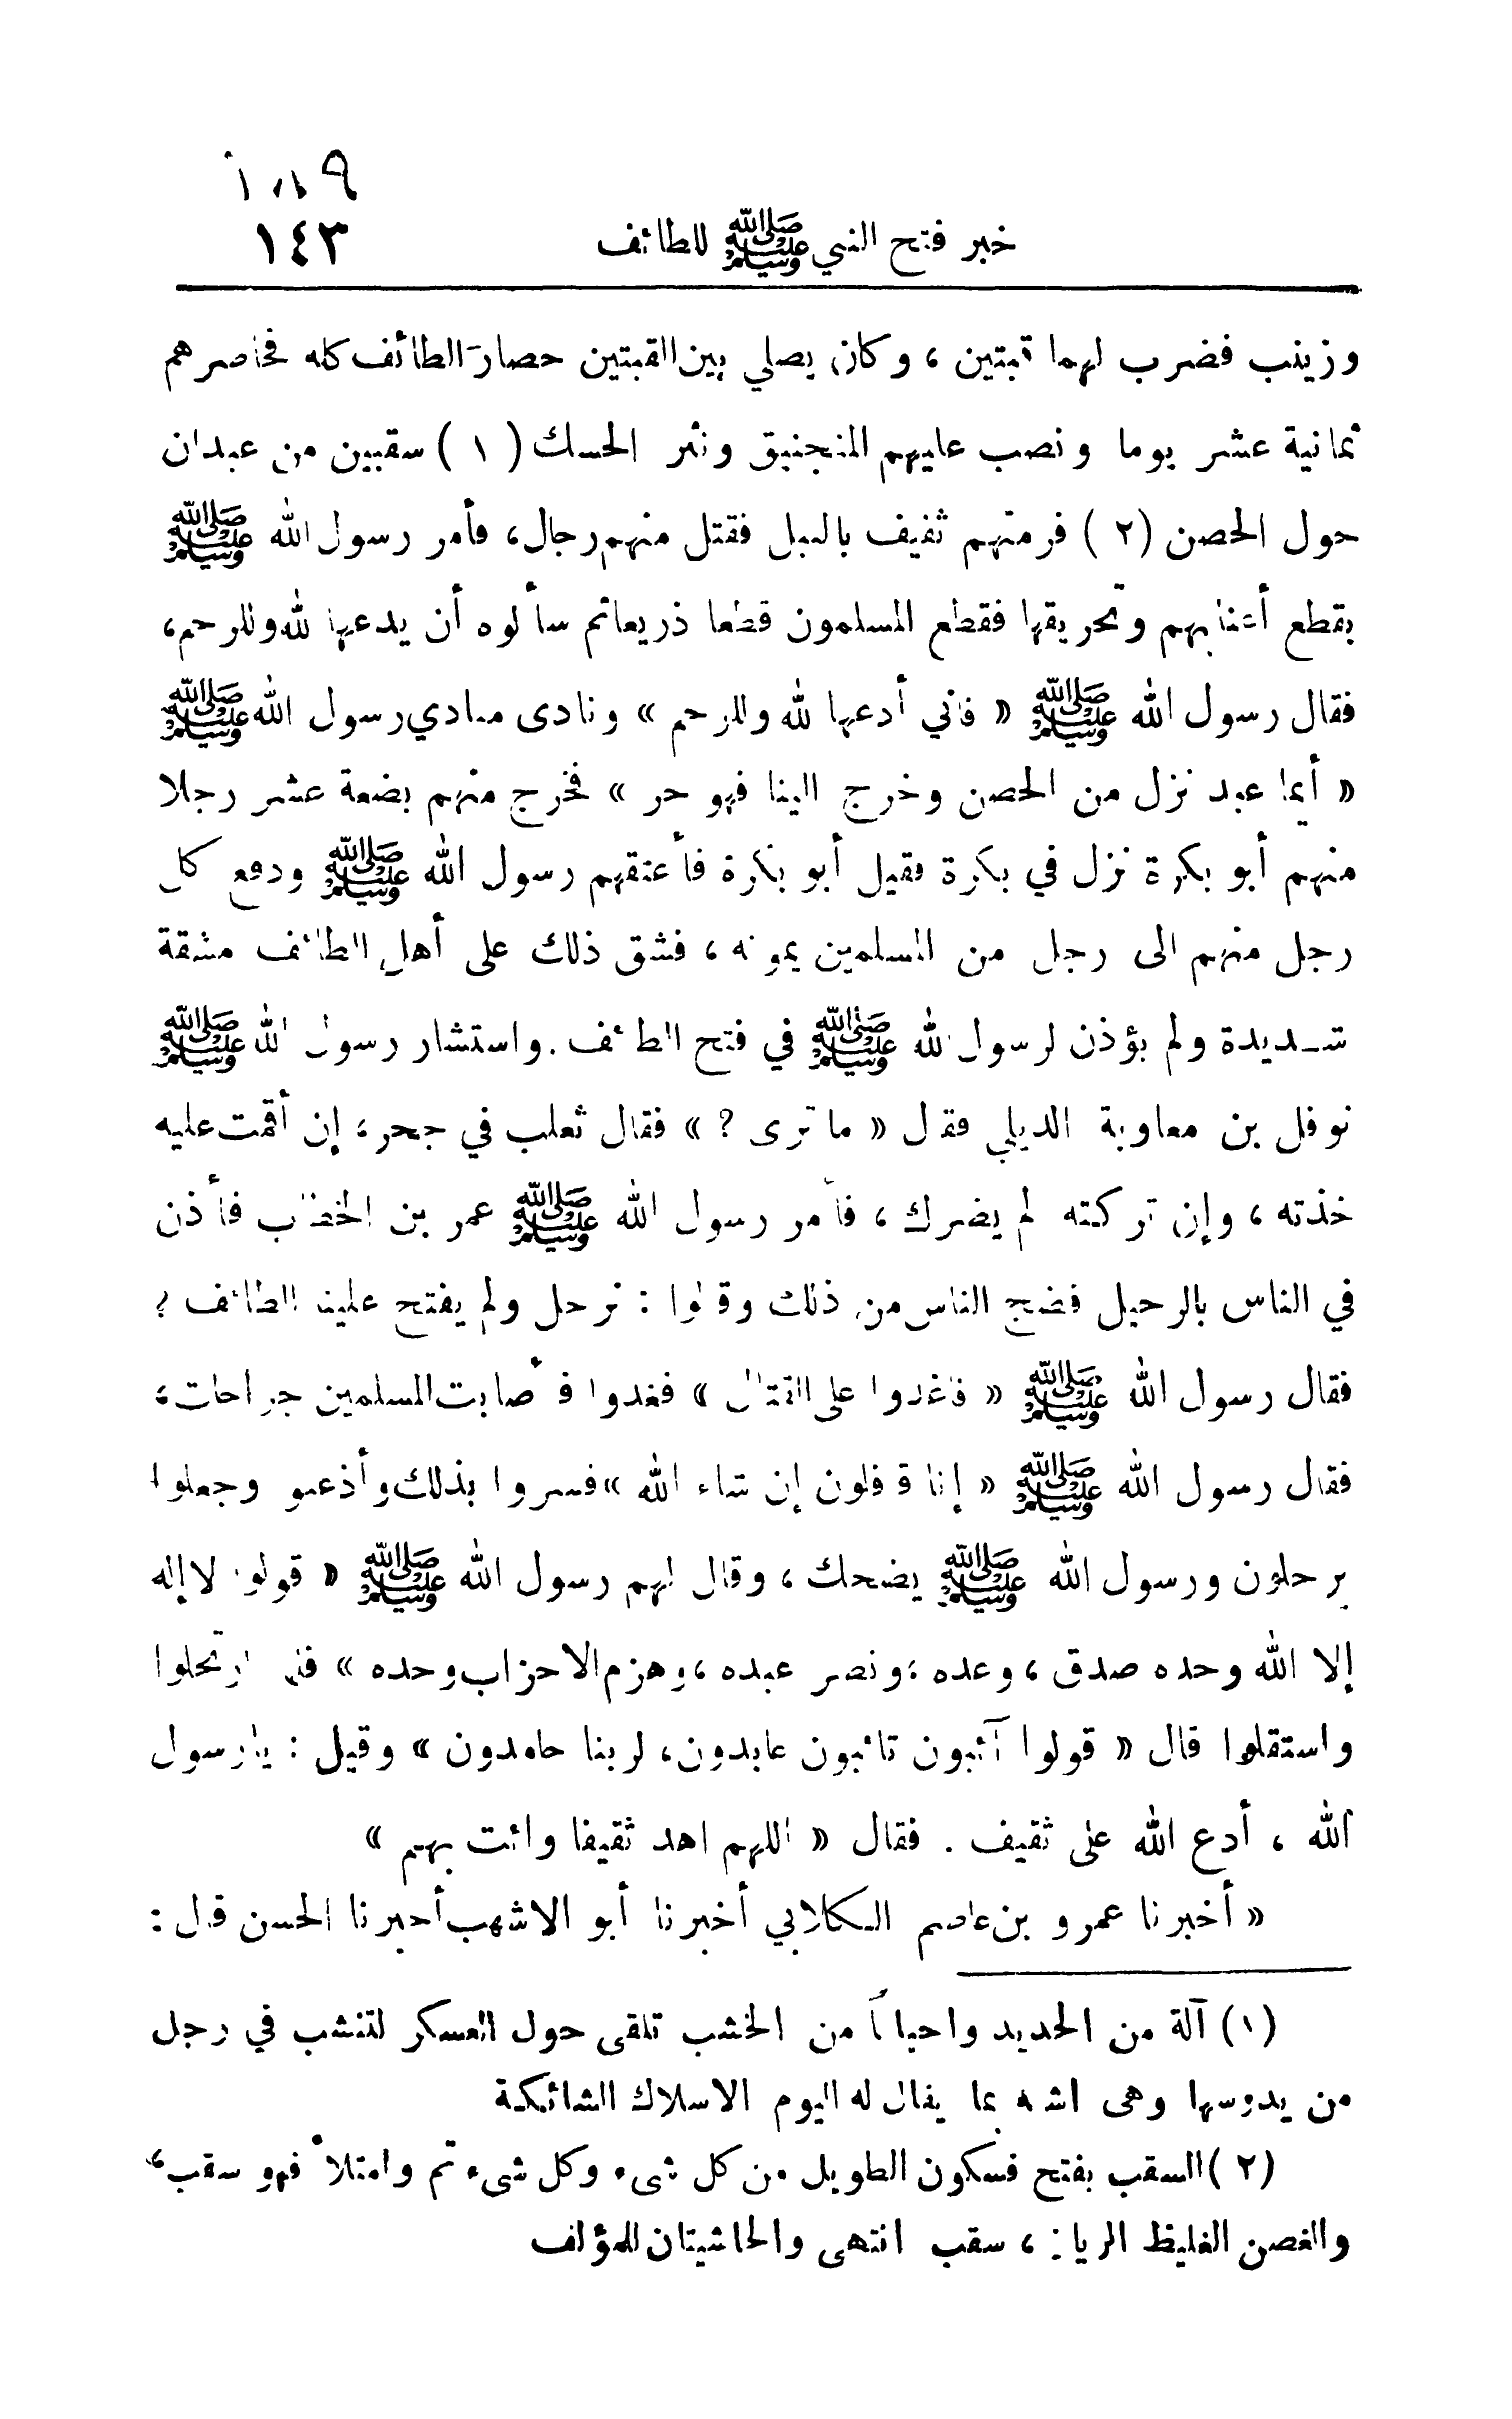 ١٠٨٩
خبر فتح النبي ﷺ للطائف ١٤٣
وزينب فضرب لهما قبتين ، وكان يصلي بين القبتين حصار الطائف كله فحاصرهم
ثمانية عشر يوما ونصب عليهم المنجنيق ونثر الحسك ( ١ ) سقبين من عبدان
حول الحصن ( ٢ ) فرمتهم ثقيف بالنبل فقتل منهم رجال ، فأمر رسول الله ﷺ
بقطع أعنابهم وتحريقها فقطع المسلمون قطعا ذريعا ثم سألوه أن يدعها لله وللرحم ،
فقال رسول الله ﷺ « فاني أدعها لله وللرحم » ونادى منادي رسول الله ﷺ
« أيما عبد نزل من الحصن وخرج الينا فهو حر » فخرج منهم بضعة عشر رجلا
منهم أبو بكرة نزل في بكرة فقيل أبو بكرة فأعتقهم رسول الله ﷺ ودفع كل
رجل منهم الى رجل من المسلمين يمونه ، فشق ذلك على أهل الطائف مشقة
شديدة ولم يؤذن لرسول الله ﷺ في فتح الطائف . واستشار رسول الله ﷺ
نوفل بن معاوية الديلي فقال « ما ترى ? » فقال ثعلب في جحر ، إن أقمت عليه
خذته ، وإن تركته لم يضرك ، فأمر رسول الله ﷺ عمر بن الخطاب فأذن
في الناس بالرحيل فضج الناس من ذلك وقالوا : نرحل ولم يفتح علينا الطائف ?
فقال رسول الله ﷺ « فاغدوا على القتال » فغدوا فأصابت المسلمين جراحات ،
فقال رسول الله ﷺ « إنا قافلون إن شاء الله » فسروا بذلك وأذعنوا وجعلوا
يرحلون ورسول الله ﷺ يضحك ، وقال لهم رسول الله ﷺ « قولوا لا إله
إلا الله وحده صدق ، وعده ، ونصر عبده ، وهزم الاحزاب وحده » فلما ارتحلوا
واستقلوا قال « قولوا آئبون تائبون عابدون ، لربنا حامدون » وقيل : يارسول
الله ، أدع الله على ثقيف . فقال « اللهم اهد ثقيفا وائت بهم »
« أخبرنا عمرو بن عاصم الكلابي أخبرنا أبو الاشهب أخبرنا الحسن قال :
(١) آلة من الحديد واحياناً من الخشب تلقى حول العسكر لتنشب في رجل
من يدوسها وهى اشبه بما يقال له اليوم الاسلاك الشائكة
( ٢ ) السقب بفتح فسكون الطويل من كل شيء وكل شيء تم وامتلأ فهو سقب ،
والغصن الغليظ الريان ، سقب انتهى والحاشيتان للمؤلف